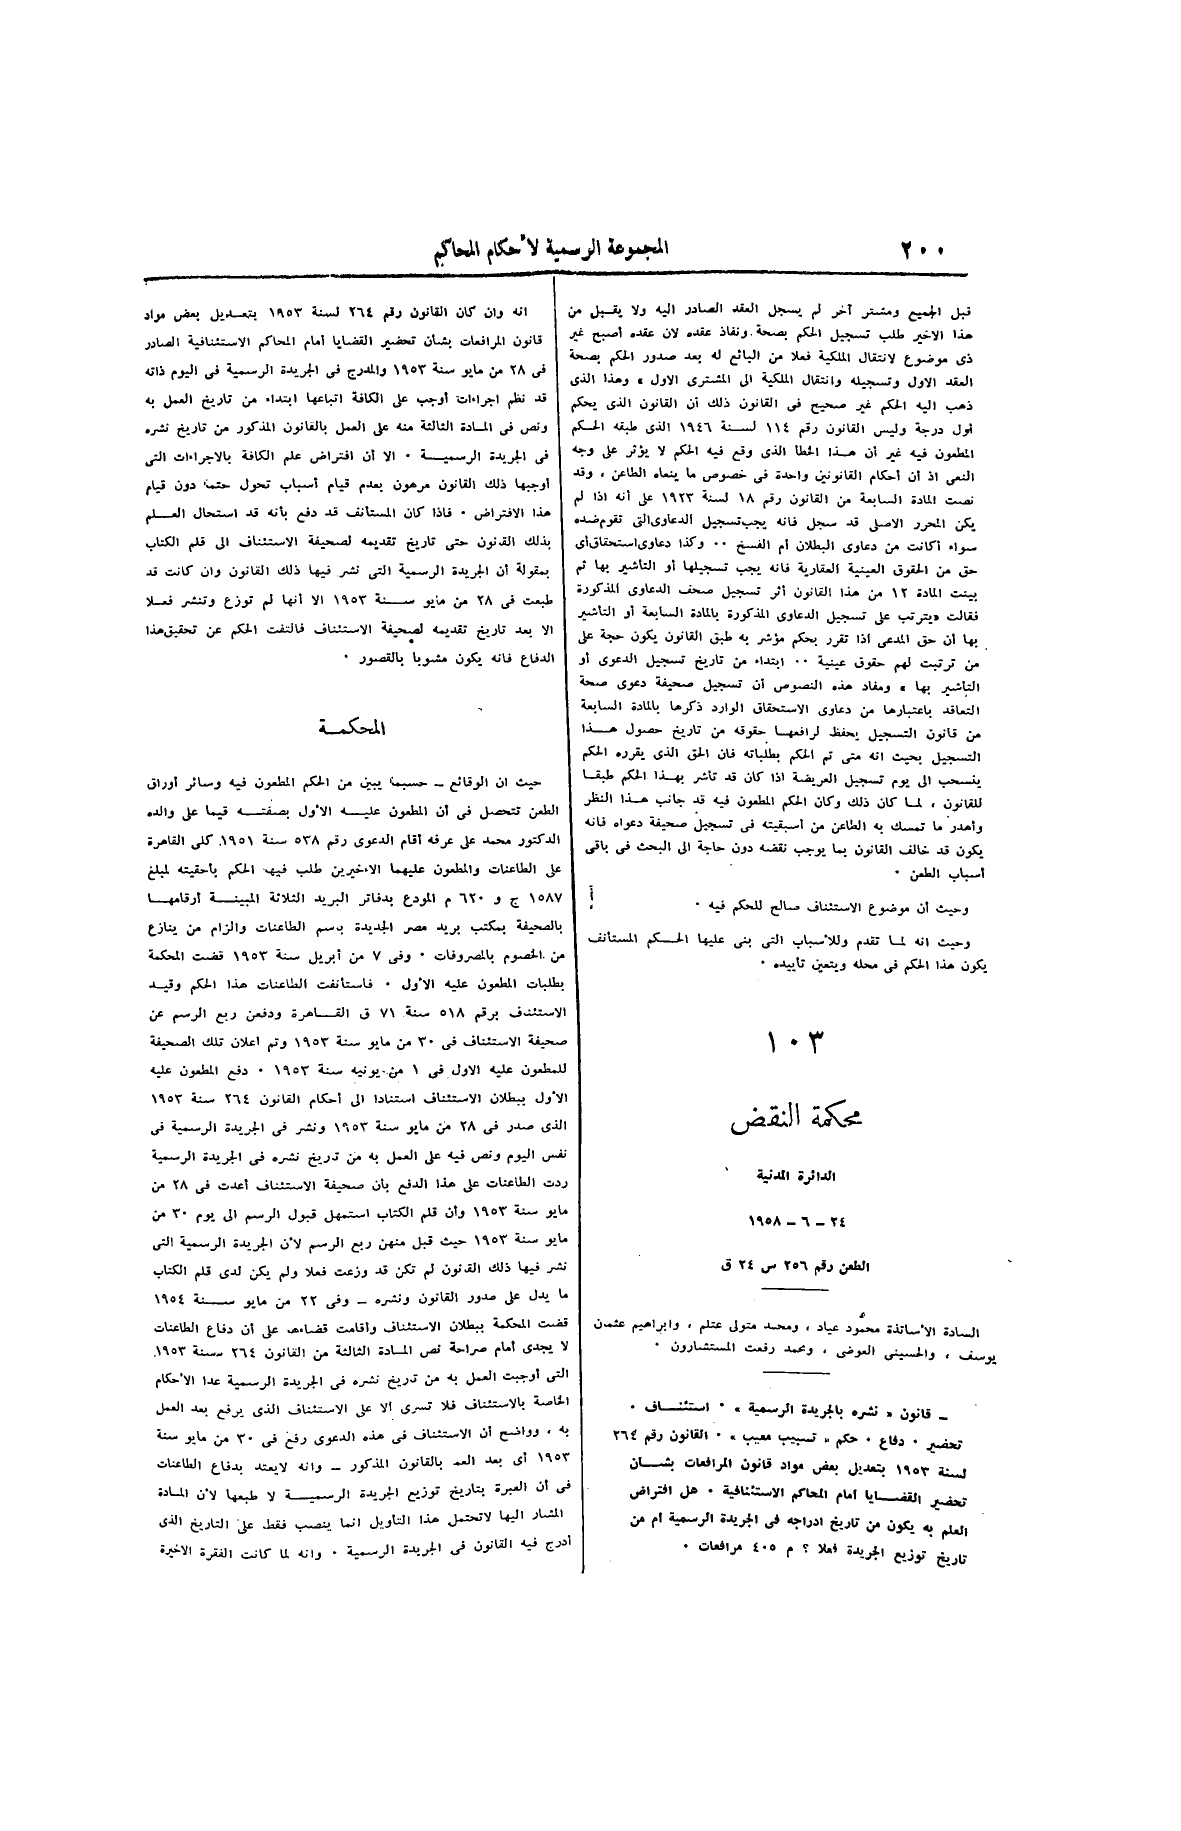 ٢٠٠
المجموعة الرسمية لأحكام المحاكم
قبل الجميع ومشتر آخر لم يسجل العقد الصادر اليه ولا يقبل من
هذا الاخير طلب تسجيل الحكم بصحة ونفاذ عقده لان عقده أصبح غير
ذى موضوع لانتقال الملكية فعلا من البائع له بعد صدور الحكم بصحة
العقد الاول وتسجيله وانتقال الملكية الى المشترى الاول » وهذا الذى
ذهب اليه الحكم غير صحيح فى القانون ذلك أن القانون الذى يحكم
أول درجة وليس القانون رقم ١١٤ لسنة ١٩٤٦ الذى طبقه الحكم
المطعون فيه غير أن هذا الخطأ الذى وقع فيه الحكم لا يؤثر على وجه
النعى اذ أن أحكام القانونين واحدة فى خصوص ما ينعاه الطاعن ، وقد
نصت المادة السابعة من القانون رقم ١٨ لسنة ١٩٢٣ على أنه اذا لم
يكن المحرر الاصلى قد سجل فانه يجب تسجيل الدعاوى التى تقوم ضده
سواء أكانت من دعاوى البطلان أم الفسخ ٠٠ وكذا دعاوى استحقاق أى
حق من الحقوق العينية العقارية فانه يجب تسجيلها أو التأشير بها ثم
بينت المادة ١٢ من هذا القانون أثر تسجيل صحف الدعاوى المذكورة
فقالت «يترتب على تسجيل الدعاوى المذكورة بالمادة السابعة أو التأشير
بها أن حق المدعى اذا تقرر بحكم مؤشر به طبق القانون يكون حجة على
من ترتبت لهم حقوق عينية ٠٠ ابتداء من تاريخ تسجيل الدعوى أو
التأشير بها » ومفاد هذه النصوص أن تسجيل صحيفة دعوى صحة
التعاقد باعتبارها من دعاوى الاستحقاق الوارد ذكرها بالمادة السابعة
من قانون التسجيل يحفظ لرافعها حقوقه من تاريخ حصول هذا
التسجيل بحيث انه متى تم الحكم بطلباته فان الحق الذى يقرره الحكم
ينسحب الى يوم تسجيل العريضة اذا كان قد تأشر بهذا الحكم طبقا
للقانون ، لما كان ذلك وكان الحكم المطعون فيه قد جانب هذا النظر
وأهدر ما تمسك به الطاعن من أسبقيته فى تسجيل صحيفة دعواه فانه
يكون قد خالف القانون بما يوجب نقضه دون حاجة الى البحث فى باقى
أسباب الطعن ٠
وحيث أن موضوع الاستئناف صالح للحكم فيه ٠
وحيث انه لما تقدم وللأسباب التى بنى عليها الحكم المستأنف
يكون هذا الحكم فى محله ويتعين تأييده ٠
١٠٣
محكمة النقض
الدائرة المدنية
٢٤ ــ ٦ ــ ١٩٥٨
الطعن رقم ٢٥٦ س ٢٤ ق
السادة الاساتذة محمود عياد ، ومحمد متولى عتلم ، وابراهيم عثمان
يوسف ، والحسينى العوضى ، ومحمد رفعت المستشارون ٠
ــ قانون « نشره بالجريدة الرسمية » ٠ استئناف ٠
تحضير ٠ دفاع ٠ حكم « تسبيب معيب» ٠ القانون رقم ٢٦٤
لسنة ١٩٥٣ بتعديل بعض مواد قانون المرافعات بشأن
تحضير القضايا أمام المحاكم الاستئنافية ٠ هل افتراض
العلم به يكون من تاريخ ادراجه فى الجريدة الرسمية أم من
تاريخ توزيع الجريدة فعلا ؟ م ٤٠٥ مرافعات ٠
انه وان كان القانون رقم ٢٦٤ لسنة ١٩٥٣ بتعديل بعض مواد
قانون المرافعات بشأن تحضير القضايا أمام المحاكم الاستئنافية الصادر
فى ٢٨ من مايو سنة ١٩٥٣ والمدرج فى الجريدة الرسمية فى اليوم ذاته
قد نظم اجراءات أوجب على الكافة اتباعها ابتداء من تاريخ العمل به
ونص فى المادة الثالثة منه على العمل بالقانون المذكور من تاريخ نشره
فى الجريدة الرسمية ٠ الا أن افتراض علم الكافة بالاجراءات التى
أوجبها ذلك القانون مرهون بعدم قيام أسباب تحول حتما دون قيام
هذا الافتراض ٠ فاذا كان المستأنف قد دفع بأنه قد استحال العلم
بذلك القانون حتى تاريخ تقديمه لصحيفة الاستئناف الى قلم الكتاب
بمقولة أن الجريدة الرسمية التى نشر فيها ذلك القانون وان كانت قد
طبعت فى ٢٨ من مايو سنة ١٩٥٣ الا أنها لم توزع وتنشر فعلا
الا بعد تاريخ تقديمه لصحيفة الاستئناف فالتفت الحكم عن تحقيق هذا
الدفاع فانه يكون مشوبا بالقصور ٠
المحكمة
حيث ان الوقائع ــ حسبما يبين من الحكم المطعون فيه وسائر أوراق
الطعن تتحصل فى أن المطعون عليه الأول بصفته قيما على والده
الدكتور محمد على عرفه أقام الدعوى رقم ٥٣٨ سنة ١٩٥١ كلى القاهرة
على الطاعنات والمطعون عليهما الاخيرين طلب فيها الحكم بأحقيته لمبلغ
١٥٨٧ ج و ٦٢٠ م المودع بدفاتر البريد الثلاثة المبينة أرقامها
بالصحيفة بمكتب بريد مصر الجديدة باسم الطاعنات والزام من ينازع
من الخصوم بالمصروفات ٠ وفى ٧ من أبريل سنة ١٩٥٣ قضت المحكمة
بطلبات المطعون عليه الأول ٠ فاستأنفت الطاعنات هذا الحكم وقيد
الاستئناف برقم ٥١٨ سنة ٧١ ق القاهرة ودفعن ربع الرسم عن
صحيفة الاستئناف فى ٣٠ من مايو سنة ١٩٥٣ وتم اعلان تلك الصحيفة
للمطعون عليه الاول فى ١ من يونيه سنة ١٩٥٣ ٠ دفع المطعون عليه
الأول ببطلان الاستئناف استنادا الى أحكام القانون ٢٦٤ سنة ١٩٥٣
الذى صدر فى ٢٨ من مايو سنة ١٩٥٣ ونشر فى الجريدة الرسمية فى
نفس اليوم ونص فيه على العمل به من تاريخ نشره فى الجريدة الرسمية
ردت الطاعنات على هذا الدفع بان صحيفة الاستئناف أعدت فى ٢٨ من
مايو سنة ١٩٥٣ وأن قلم الكتاب استمهل قبول الرسم الى يوم ٣٠ من
مايو سنة ١٩٥٣ حيث قبل منهن ربع الرسم لأن الجريدة الرسمية التى
نشر فيها ذلك القانون لم تكن قد وزعت فعلا ولم يكن لدى قلم الكتاب
ما يدل على صدور القانون ونشره ــ وفى ٢٢ من مايو سنة ١٩٥٤
قضت المحكمة ببطلان الاستئناف وأقامت قضاءها على أن دفاع الطاعنات
لا يجدى أمام صراحة نص المادة الثالثة من القانون ٢٦٤ سنة ١٩٥٣
التى أوجبت العمل به من تاريخ نشره فى الجريدة الرسمية عدا الأحكام
الخاصة بالاستئناف فلا تسرى الا على الاستئناف الذى يرفع بعد العمل
به ، وواضح أن الاستئناف فى هذه الدعوى رفع فى ٣٠ من مايو سنة
١٩٥٣ أى بعد العمل بالقانون المذكور ــ وانه لايعتد بدفاع الطاعنات
فى أن العبرة بتاريخ توزيع الجريدة الرسمية لا طبعها لأن المادة
المشار اليها لاتحتمل هذا التأويل انما ينصب فقط على التاريخ الذى
أدرج فيه القانون فى الجريدة الرسمية ٠ وانه لما كانت الفقرة الاخيرة